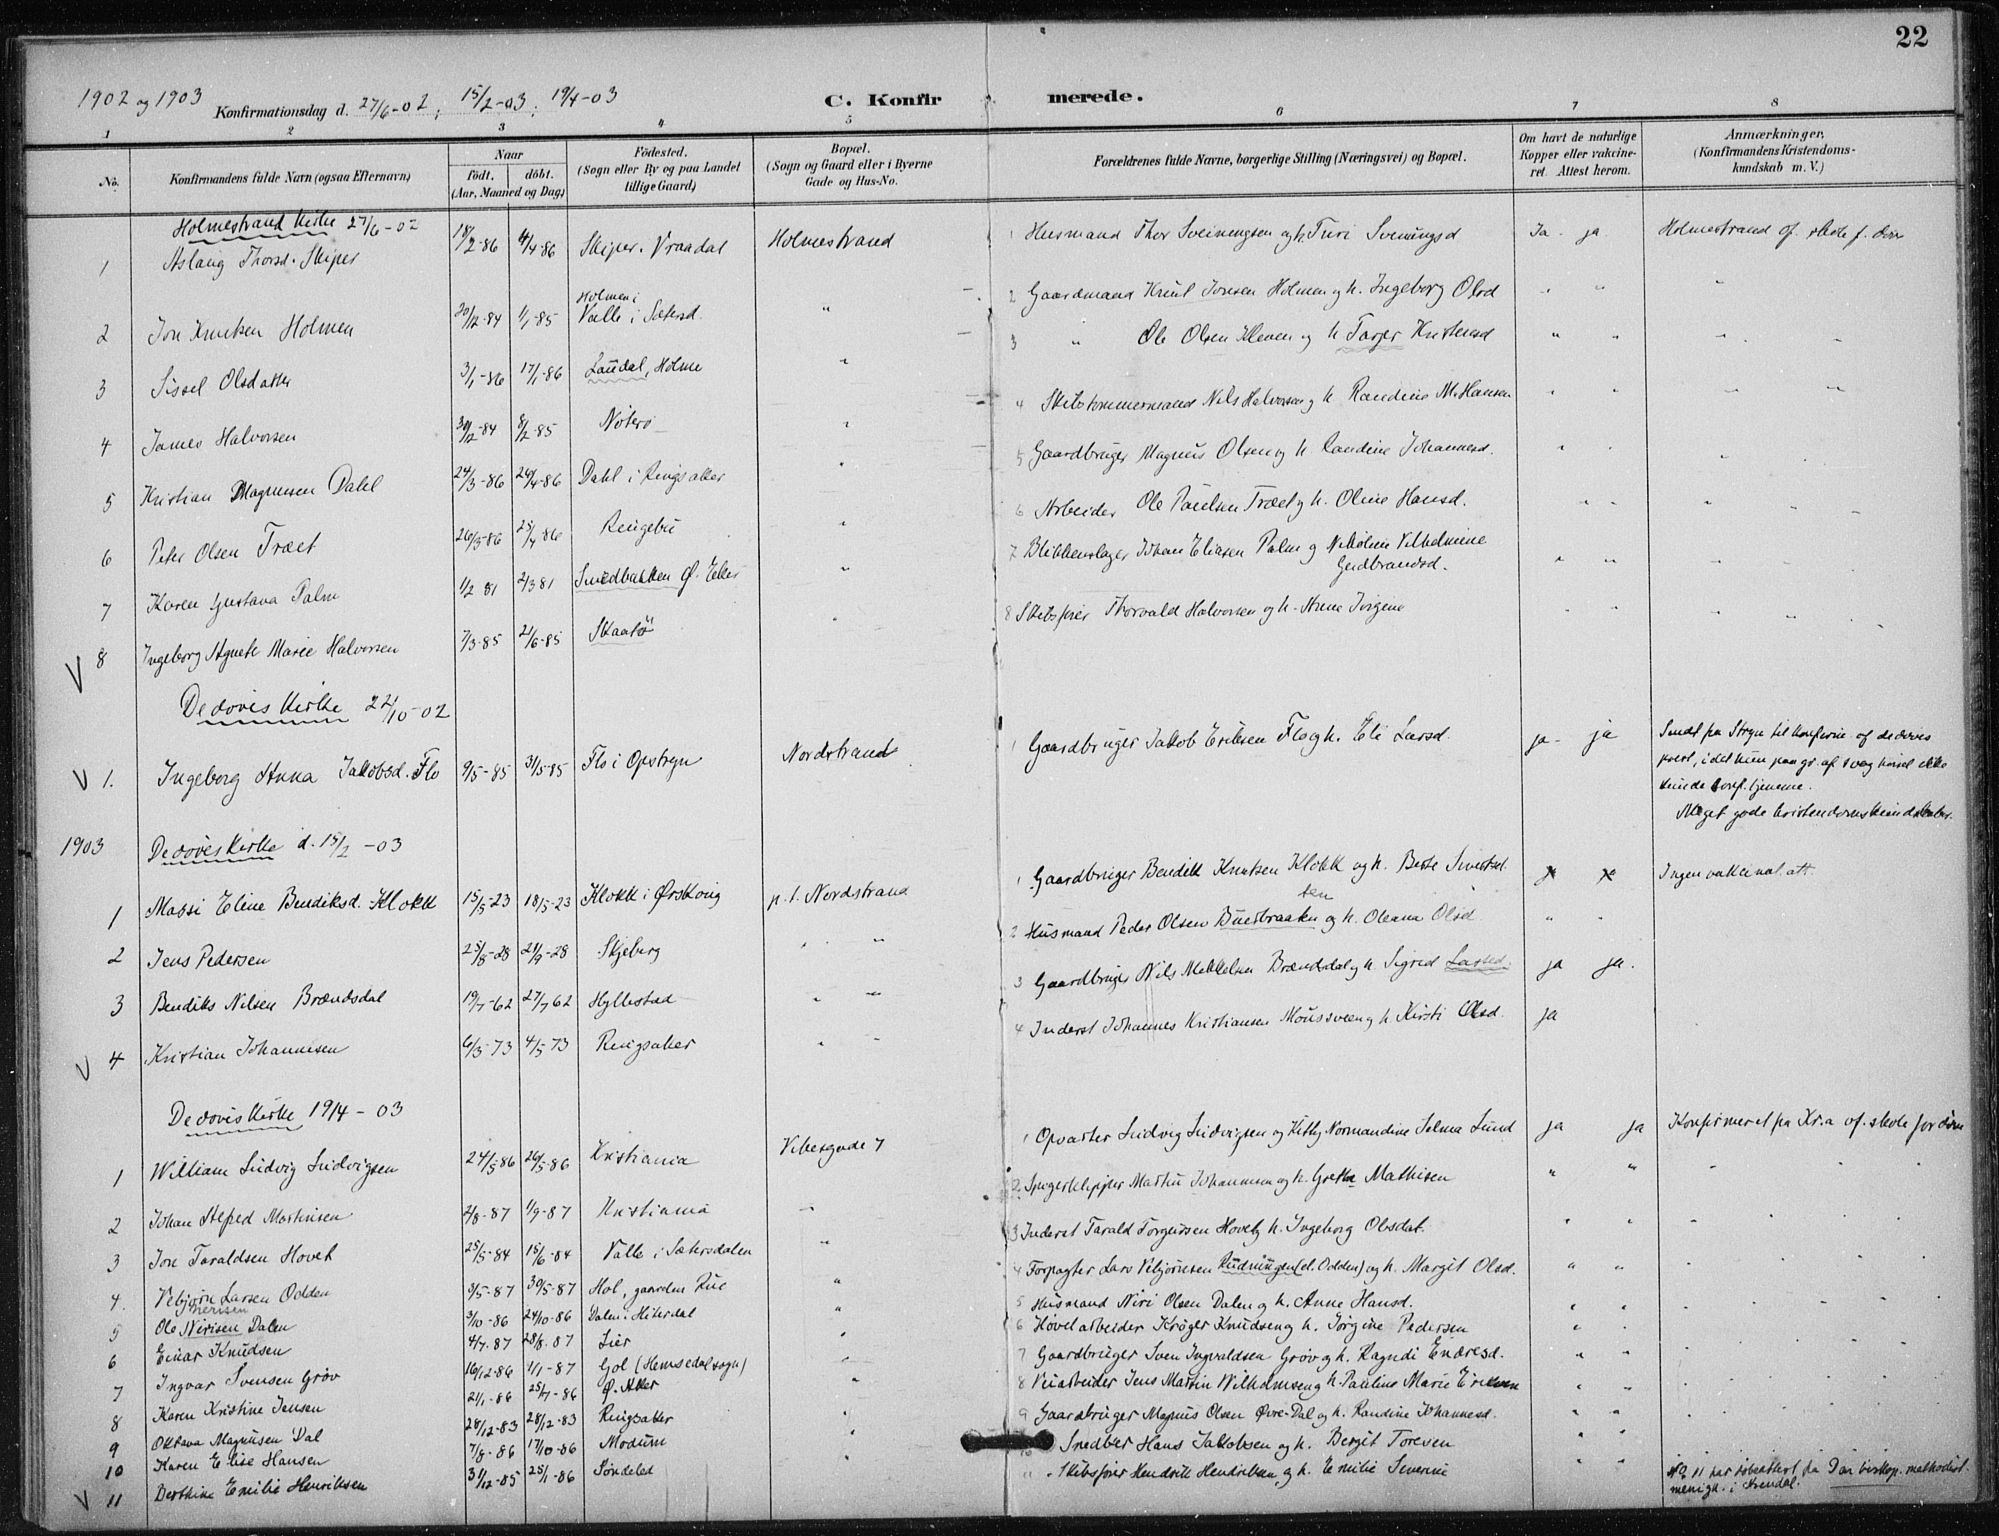 22
1902 og 1903 Konfirmationsdag d. 27/6-02; 15/2-03; 19/4-03 C. Konfirmerede.
1 2 3 4 5 6 7 8
No. Konfirmandens fulde Navn (ogsaa Efternavn) Naar født. døbt. (Aar, Maaned og Dag) Fødested. (Sogn eller By og paa Landet tillige Gaard) Bopæl. (Sogn og Gaard eller i Byerne Gade og Hus-No. Forældrenes fulde Navne, borgerlige Stilling (Næringsvei) og Bopæl. Om havt de naturlige Kopper eller vakcineret. Attest herom. Anmærkninger, (Konfirmandens Kristendomskundskab m. V.)
Holmestrand Kirke 27/6-02
1 Aslaug Thorsd. Skiper 18/2-86 4/4-86 Skiper. Vraadal Holmestrand 1 Husmand Thor Sveinungsen og h. Turi Sveinungsd Ja - ja Holmestrand of. skole f. døve
2 Jon Knutsen Holmen 20/12-84 1/1-85 Holmen i Valle i Sætersd. " 2 Gaardmand Knut Jonsen Holmen og h. Ingeborg Olsd " " "
3 Sissel Olsdatter 3/1-86 17/1-86 Laudal, Holme " 3 " Ole Olsen Kleven og h Tarjer Kristensd " " " "
4 James Halvorsen 30/12-84 8/2-85 Nøterø " 4 Skibstømmermand Nils Halvorsen og h. Randine M. Hansen " " " "
5 Kristian Magnussen Dahl 24/3-86 26/4-86 Dahl i Ringsaker " 5 Gaardbruger Magnus Olsen og h Randine Johannesd. " " "
6 Peter Olsen Træet 26/3-86 25/4-86 Ringebu " 6 Arbeider Ole Paulsen Træet og h. Oline Hansd. " " " " "
7 Karen Gustava Palm 1/2 81 2/3 81 Smedbakken Ø. Eker " 7 Blikkenslager Johan Eliasen Palm og Nikoline Vilhelmine Gudbrandsd. " " " "
8 Ingeborg Agnete Marie Halvorsen 7/3-85 21/6-85 Skaatø " 8 Skibsfører Thorvald Halvorsen og h. Anne Jørgine " " " " "
De døves Kirke 22/10-02
1. Ingeborg Anna Jakobsd. Flo 9/5-85 31/5-85 Flo i Opstryn Nordstrand 1 Gaardbruger Jakob Eriksen Flo og h. Eli Larsd ja - ja Sendt fra Stryn til konferme af de døves
prest, idet hun paa gr. af svag hørsel ikke
kunde konf. hjemme.
Meget gode kristendomskundskaber.
1903 De døves Kirke d. 15/2-03
1 Massi Eline Bendiksd. Klokk 15/5-23 18/5-23 Klokk i Ørskoug p. t. Nordstrand 1 Gaardbruger Bendik Knutsen Klokk og h. Berte Sivertsd. Ingen vakcinat. att.
2 Jens Pedersen 25/8-28 21/9-28 Skjeberg " " 2 Husmand Peder Olsen Buerbraaten og h. Oleana Olsd " "
3 Bendiks Nilsen Brændsdal 19/7-62 27/7 62 Hyllestad " " 3 Gaardbruger Nils Mikkelsen Brændsdal og h. Sigrid Larsd. ja ja.
4 Kristian Johannesen 6/3-73 4/5 73 Ringsaker " " 4 Inderst Johannes Kristiansen Moussveen og h. Kirsti Olsd. ja
De døves Kirke 19/4-03
1 William Ludvig Ludvigsen 24/5-86 26/5-86 Kristiania Vibesgade 7 1 Opvarter Ludvig Ludvigsen og Kitty Normandine Selma Lund ja ja Konfirmeret fra Kr.a of. skole for døve
2 Johan Alfred Martinsen 2/8-87 1/9-87 Kristiania " 2 Spigerklipper Martin Johannesen og h. Grethe Mathisen " " " "
3 Jon Taraldsen Hovet 25/5-84 15/6-84 Valle i Sætersdalen " 3 Inderst Tarald Torgussen Hovet og h. Ingeborg Olsdat. " " " "
4. Vebjørn Larsen Odden 3/5-87 30/5-87 Hol, gaarden Rue " 4 Forpagter Lars Vebjørnsen Rudningen (el. Odden) og h. Margit Olsd. " " " "
nerisen
5 Ole Nirisen Dalen 3/10-86 24/10-86 Dalen i Hiterdal " 5 Husmand Niri Olsen Dalen og h. Anne Hansd. " " " "
6 Einar Knudsen 4/7-87 28/8-87 Lier " 6 Høvelarbeider Krøger Knudsen og h. Jørgine Pedersen " " " "
7 Ingvar Svensen Grøv 16/12-86 1/1-87 Gol (Hemsedal sogn) " 7 Gaardbruger Sven Ingvaldsen Grøv og h. Ragndi Endresd. " " " "
8 Karen Kristine Jensen 21/1-86 25/7-86 Ø. Aker " 8 Veiarbeider Jens Martin Wilhelmsen og h. Pauline Marie Eriksen " " " "
9 Oktava Magnusen Dal 28/12-83 28/12-83 Ringsaker " 9 Gaardbruger Magnus Olsen Øvre-Dal og h. Randine Johannesd. " " " "
10 Karen Elise Hansen 7/8-86 17/10-86 Modum " 10 Snedker Hans Jakobsen og h. Bergit Toresen " "
11 Berthine Emilie Henriksen 31/12-85 25/1-86 Søndeled 11 Skibsfører Hendrik Hendriksen og h. Emilie Severine " " No 11 har døbeattest fra Den biskop. methodist.
menigh. i Arendal.